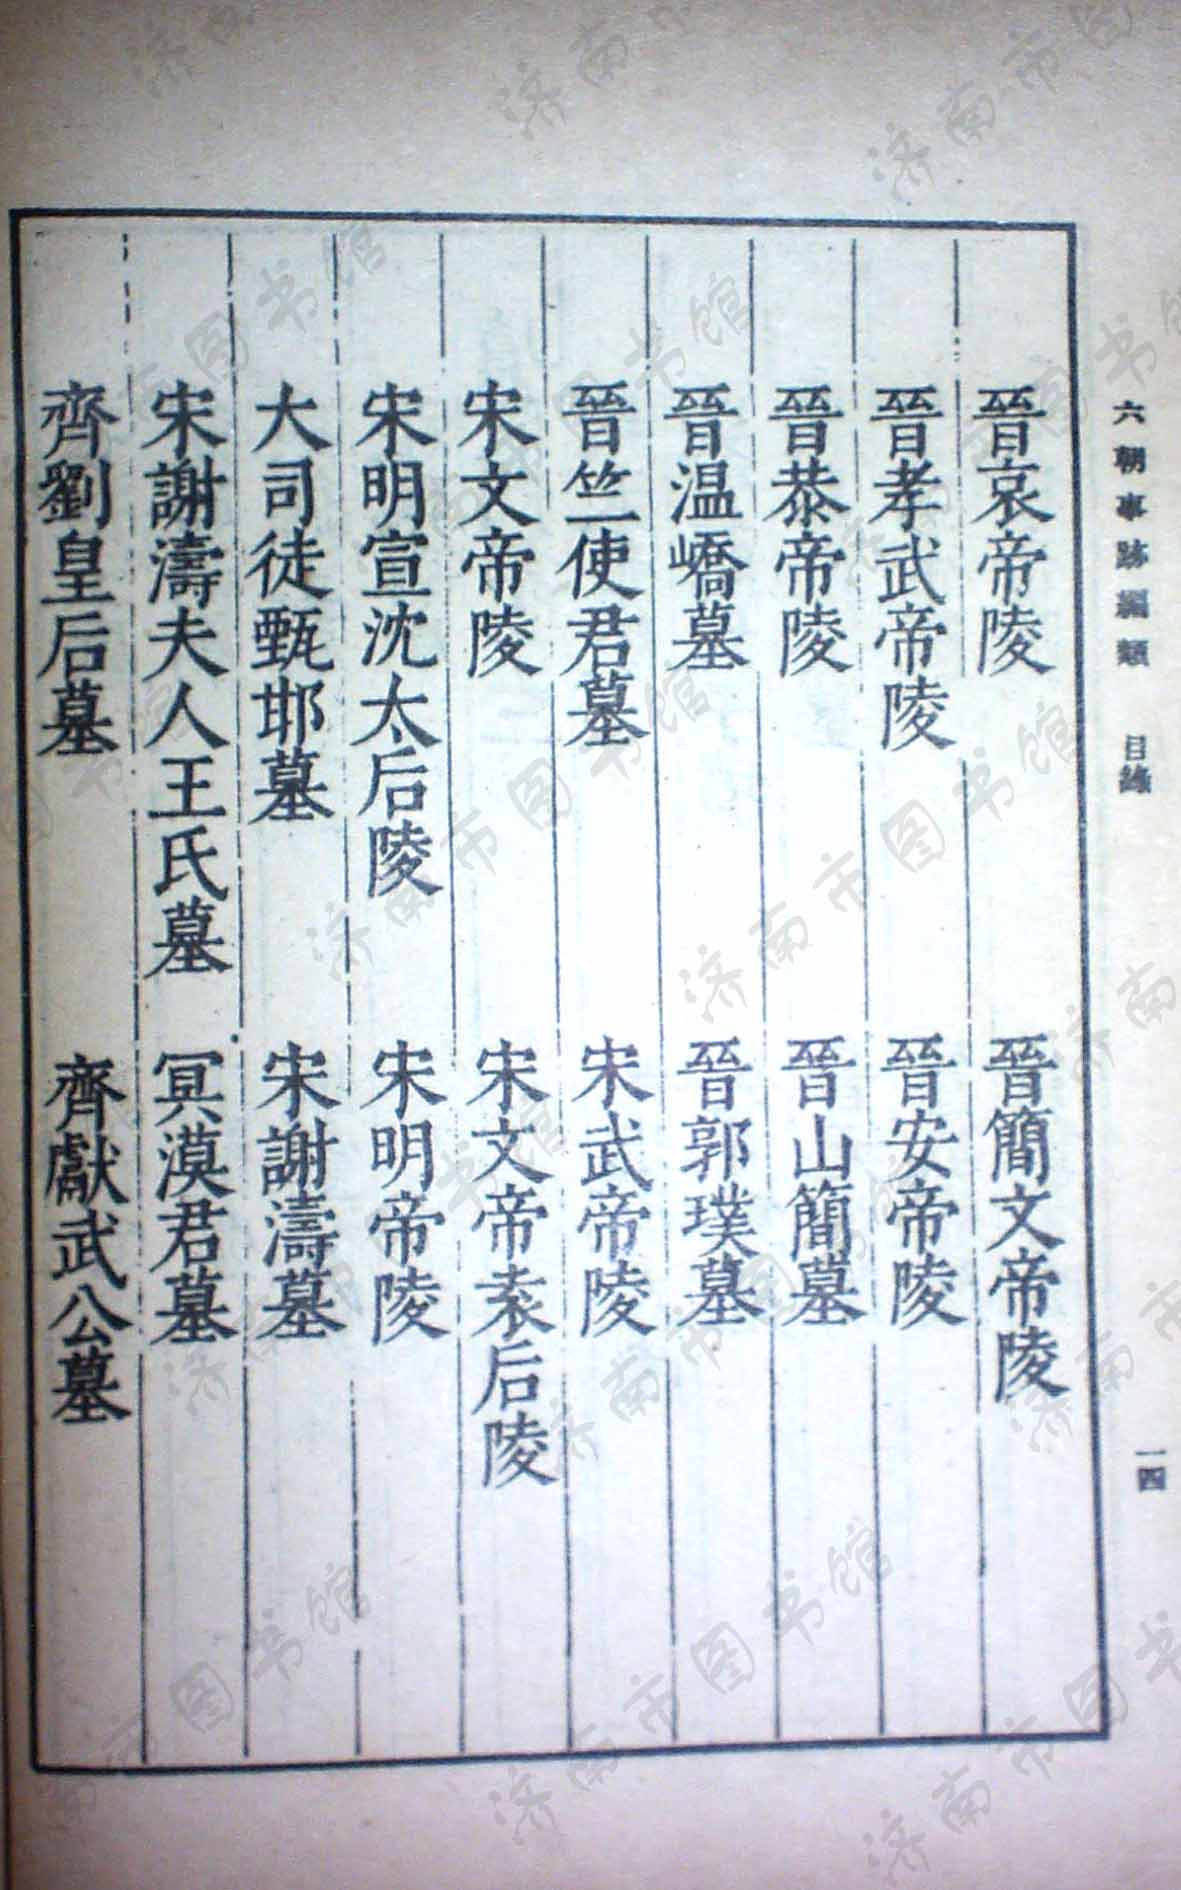 六朝事跡編類 目錄 一四
晉哀帝陵 晉簡文帝陵
晉孝武帝陵 晉安帝陵
晉恭帝陵 晉山簡墓
晉温嶠墓 晉郭璞墓
晉竺使君墓 宋武帝陵
宋文帝陵 宋文帝袁后陵
宋明宣沈太后陵 宋明帝陵
大司徒甄邯墓 宋謝濤墓
宋謝濤夫人王氏墓 冥漠君墓
齊劉皇后墓 齊獻武公墓
济南市图书馆